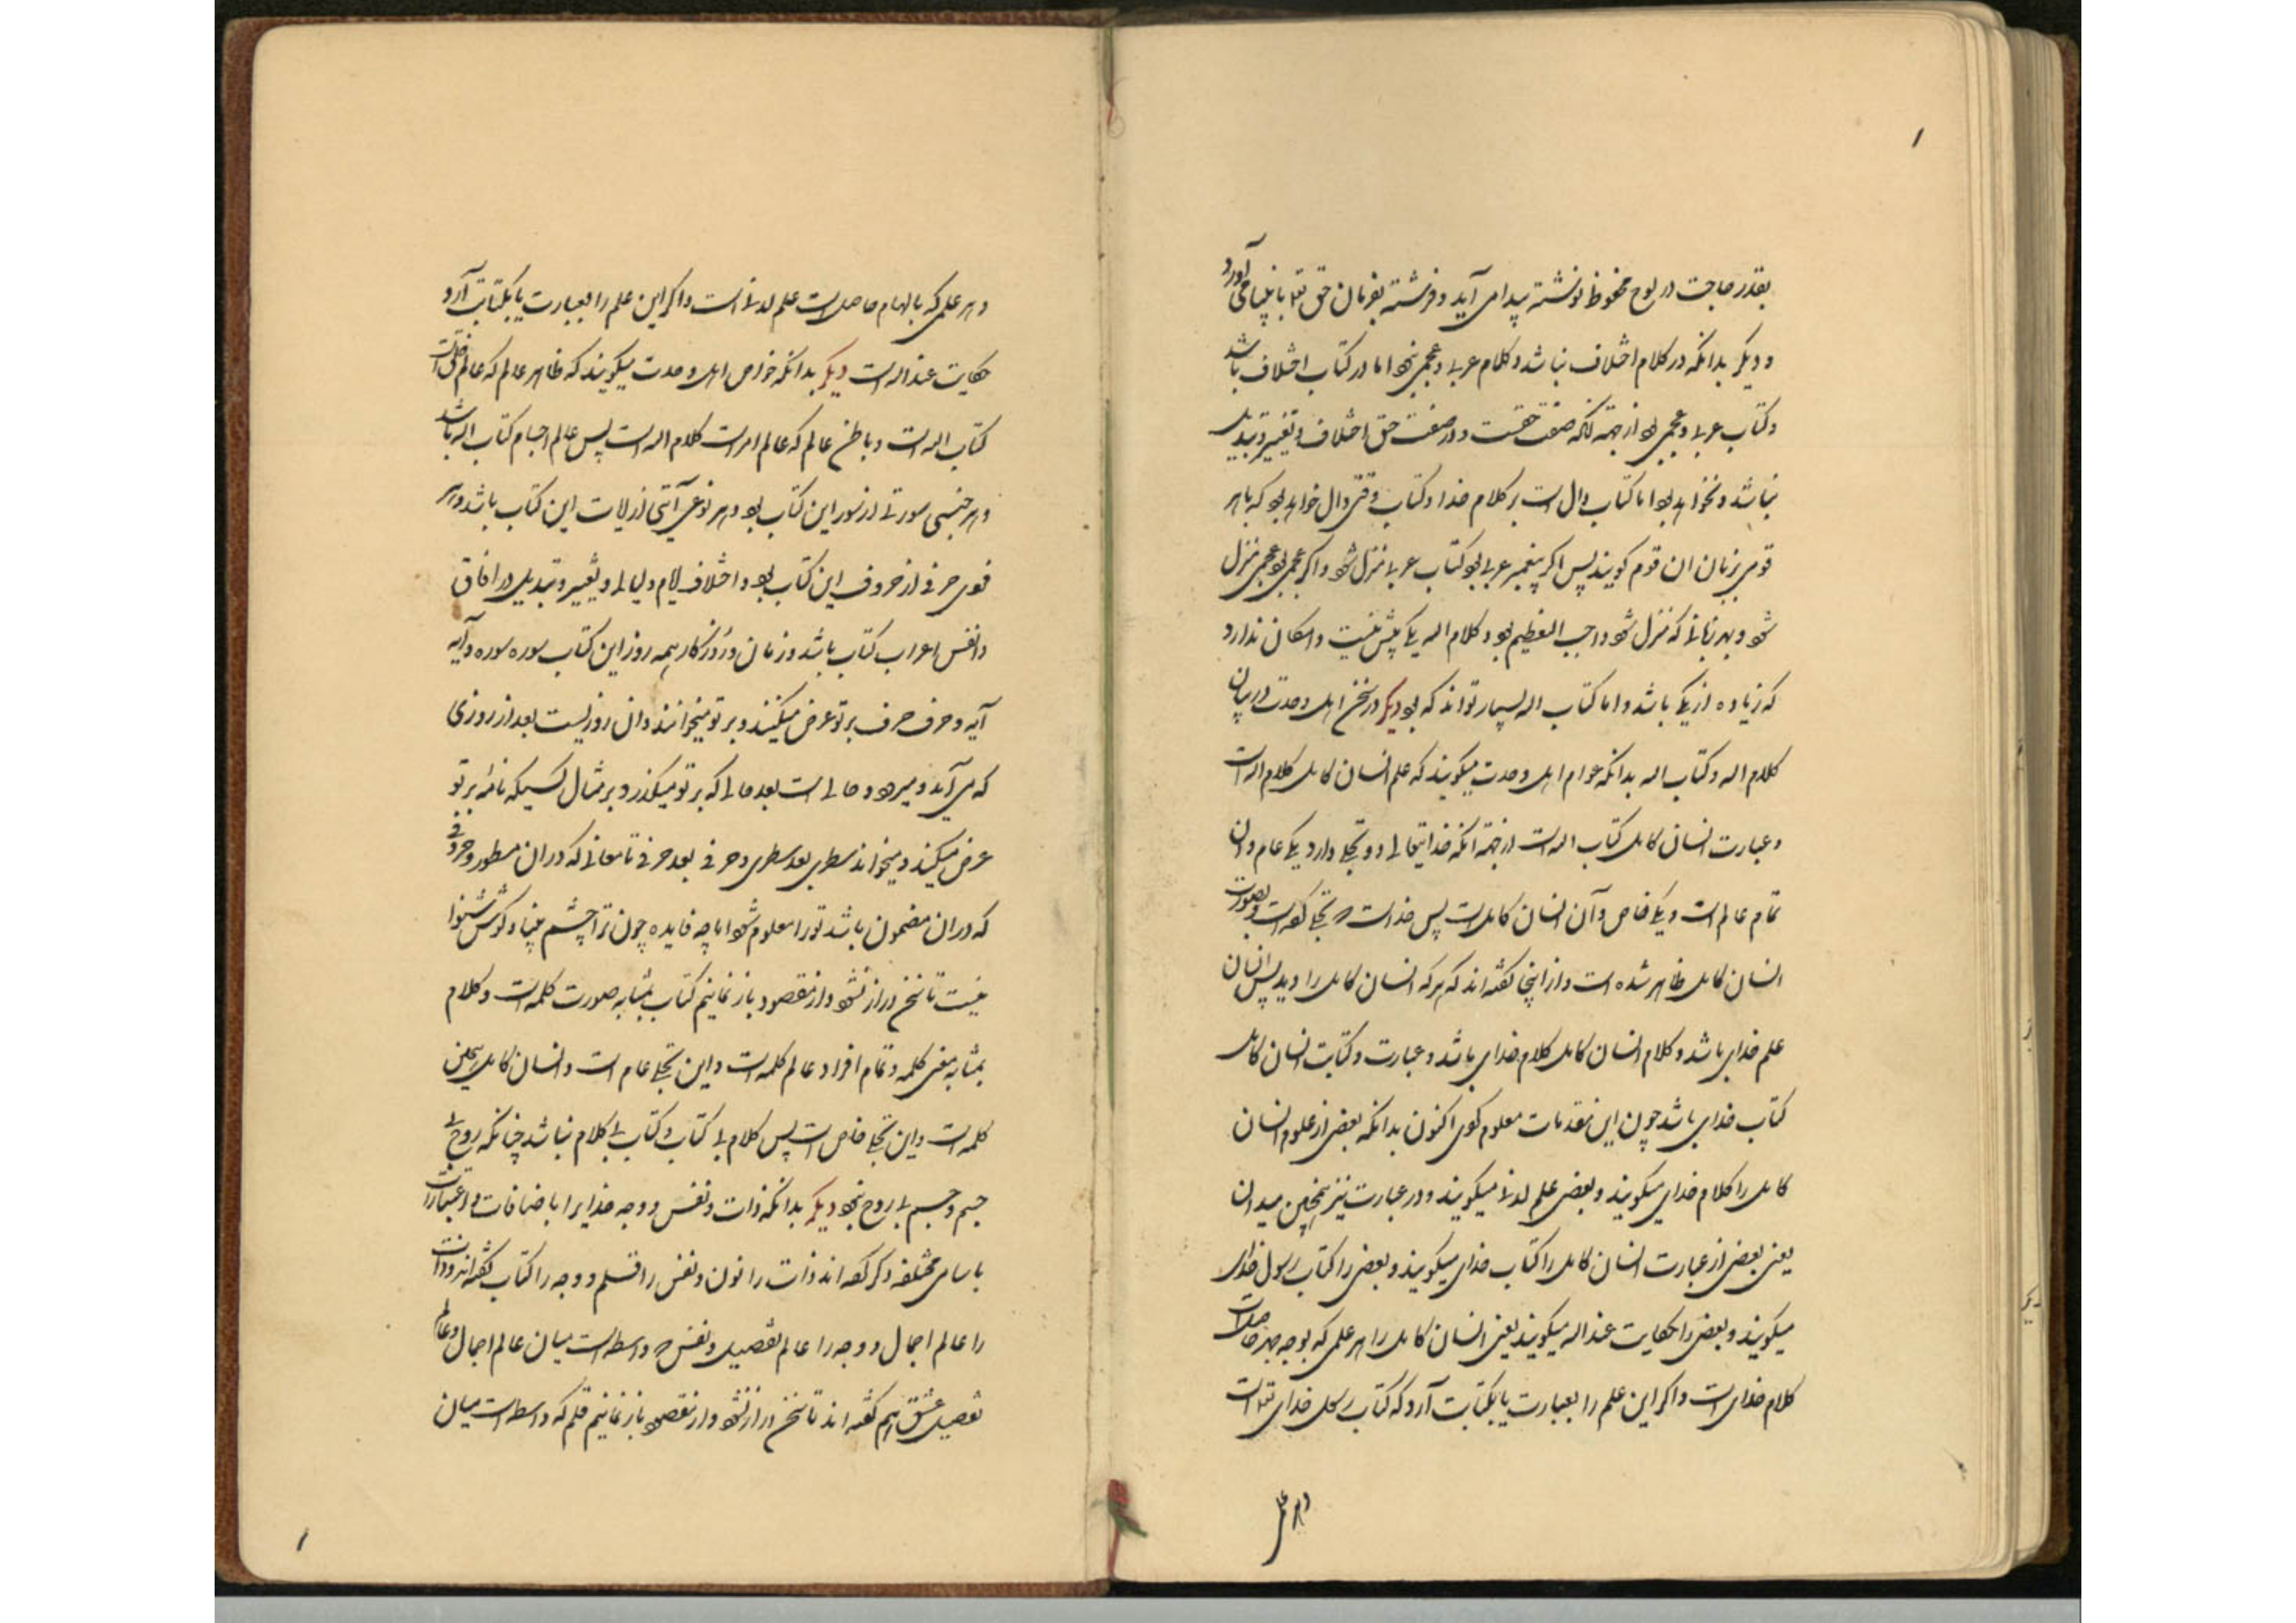 ۱
بقدر حاجت در لوح محفوظ نوشته پیدا می آید و فرشته بفرمان حق تع با پیغامبر می آورد
و دیگر بدانکه در کلام اختلاف نباشد و کلام عربی و عجمی نبود اما در کتاب اختلاف باشد
و کتاب عربی و عجمی بود از جهت آنکه صفت حقست و در صفت حق اختلاف و تغییر و تبدیل
نباشد و نخواهد بود اما کتاب دال است بر کلام خدا و کتاب وقتی دال خواهد بود که با هر
قومی بزبان ان قوم کویند پس اکر پیغمبر عربی بود کتاب عربی منزل شود و اکر عجمی بود عجمی منزل
شود و بهر زبانی که منزل شود واجب التعظیم بود و کلام اله یکی بیش نیست و امکان ندارد
که زیاده از یکی باشد و اما کتاب اله بسیار تواند که بود دیکر در سخن اهل وحدت در بیان
کلام اله و کتاب اله بدانکه عوام اهل وحدت میکویند که علم انسان کامل کلام اله است
و عبارت انسان کامل کتاب اله است از جهة آنکه خدایتعالی دو تجلی دارد یکی عام و ان
تمام عالم است و یکی خاص و آن انسان کامل است پس خداست که تجلی کرده است و بصورت
انسان کامل ظاهر شده است و از اینجا کفته اند که هر که انسان کامل را دید پس انسان
علم خدای باشد و کلام انسان کامل کلام خدای باشد و عبارت و کتابت انسان کامل
کتاب خدای باشد چون این مقدمات معلوم کردی اکنون بدانکه بعضی از علوم انسان
کامل را کلام خدای میکویند و بعضی علم لدنی میکویند و در عبارت نیز همچنین میدان
یعنی بعضی از عبارت انسان کامل را کتاب خدای میکویند و بعضی را کتاب رسول خدای
میکویند و بعضی را حکایت عند اله میکویند یعنی انسان کامل را هر علمی که بوجه جهر حاصل است
کلام خدای است و اکر این علم را بعبارت یا بکتابت آرد که کتاب رسل خدای تع است
و هر علمی
و هر علمی که بالهام حاصل است علم لدنی است و اکر این علم را بعبارت یا بکتابت آرد
حکایت عند اله است دیکر بدانکه خواص اهل وحدت میکویند که ظاهر عالم که عالم خلق است
کتاب اله است و باطن عالم که عالم امر است کلام اله است پس عالم اجسام کتاب اله باشد
و هر جنسی سورتی از سور این کتاب بود و هر نوعی آیتی از ایات این کتاب باشد و هر
فردی حرفی از حروف این کتاب بود و اختلاف ایام و لیالی و تغییر و تبدیل در افاق
و انفس اعراب کتاب باشد و زمان و روزکار همه روز این کتاب سوره سوره و آیه
آیه و حرف حرف بر تو عرض میکنند و بر تو میخوانند و ان روزیست بعد از روزی
که می آید و میرود و حالی است بعد حالی که بر تو میکذرد بر مثال کسیکه نامه بر تو
عرض میکند و میخواند سطری بعد سطری و حرفی بعد حرفی تا معانی که در ان سطور و حروفی
که در ان مضمون باشد تو را معلوم شود اما چه فایده چون ترا چشم بینا و کوش شنوا
نیست تا سخن دراز نشود و از مقصود باز نمانیم کتاب بمثابه صورت کلمه است و کلام
بمثابه معنی کلمه و تمام افراد عالم کلمه است و این تجلی عام است و انسان کامل همین
کلمه است و این تجلی خاص است پس کلام بی کتاب و کتاب بی کلام نباشد چنانکه روح بی
جسم و جسم بی روح نبود دیکر بدانکه ذات و نفس و وجه خدایرا باضافات و اعتبارات
باسامی مختلفه ذکر کرده اند ذات را نون و نفس را قلم و وجه را کتاب کفته اند و ذات
را عالم اجمال و وجه را عالم تفصیل و نفس که واسطه است میان عالم اجمال و عالم
تفصیل عشق هم کفته اند تا سخن دراز نشود و از مقصود باز نمانیم قلم که واسطه است میان
۱